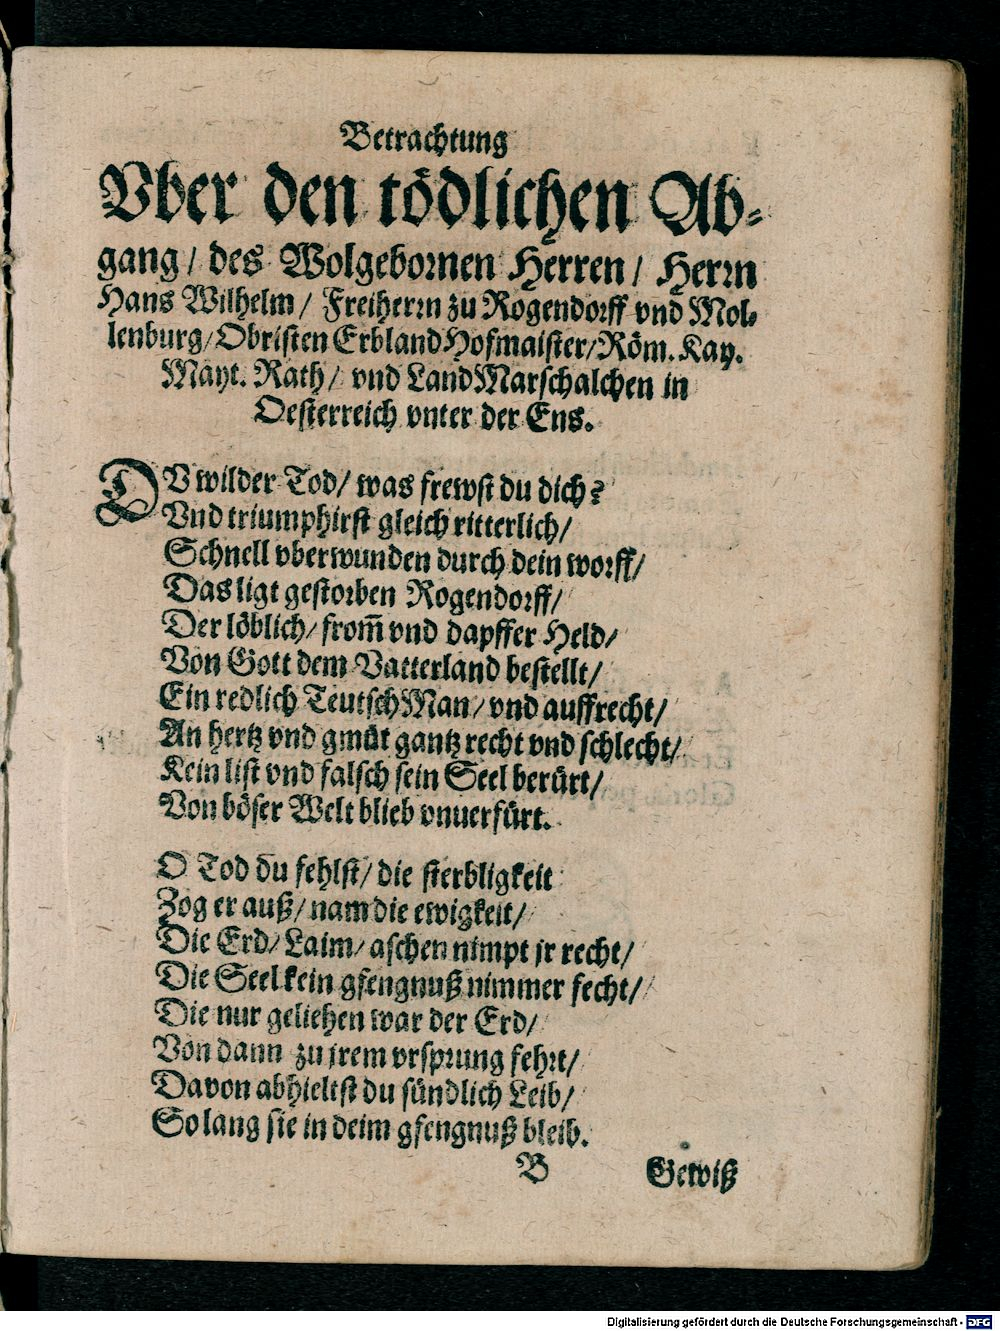 Betrachtung
Vber den tödlichen Ab-
gang/ des Wolgebornen Herren/ Herrn
Hans Wilhelm/ Freiherrn zu Rogendorff vnd Mol-
lenburg/ Obristen ErblandHofmaister/ Röm. Kay.
Mayt. Rath/ vnd LandMarschalchen in
Oesterreich vnter der Ens.
DV wilder Tod/ was frewst du dich?
Vnd triumphirst gleich ritterlich/
Schnell vberwunden durch dein worff/
Das ligt gestorben Rogendorff/
Der löblich/ from̃ vnd dapffer Held/
Von Gott dem Vatterland bestellt/
Ein redlich TeutschMan/ vnd auffrecht/
An hertz vnd gmüt gantz recht vnd schlecht/
Kein list vnd falsch sein Seel berürt/
Von böser Welt blieb vnuerfürt.
O Tod du fehlst/ die sterbligkeit
Zog er auß/ nam die ewigkeit/
Die Erd/ Laim/ aschen nimpt jr recht/
Die Seel kein gfengnuß nimmer fecht/
Die nur geliehen war der Erd/
Von dann zu jrem vrsprung fehrt/
Davon abhieltst du sündlich Leib/
So lang sie in deim gfengnuß bleib.
B Gewiß
Digitalisierung gefördert durch die Deutsche Forschungsgemeinschaft - DFG